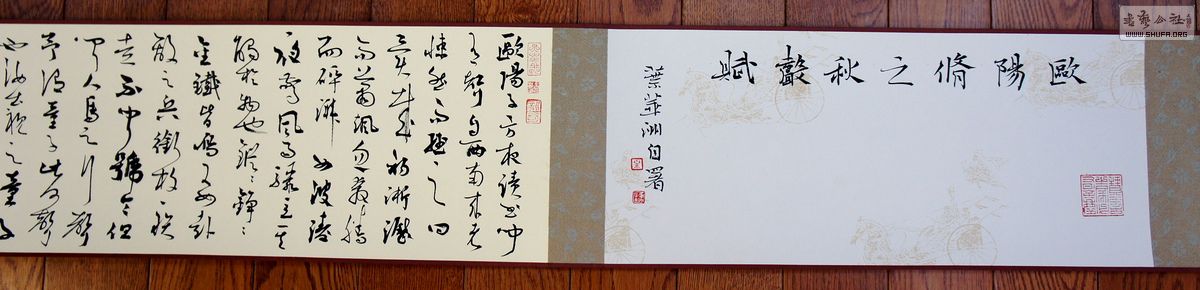 歐陽脩之秋聲賦
葉華洲自署
歐陽子方夜讀書聞
有聲自西南來者
悚然而聽之曰
異哉初淅瀝
而蕭颯忽奔騰
而砰湃如波濤
夜驚風雨驟至其
觸於物也鏦鏦錚錚
金鐵皆鳴又如赴
敵之兵銜枚疾
走不聞號令但
聞人馬之行聲
予謂童子此何聲
也汝出視之童子
書藝公社
WWW.SHUFA.ORG